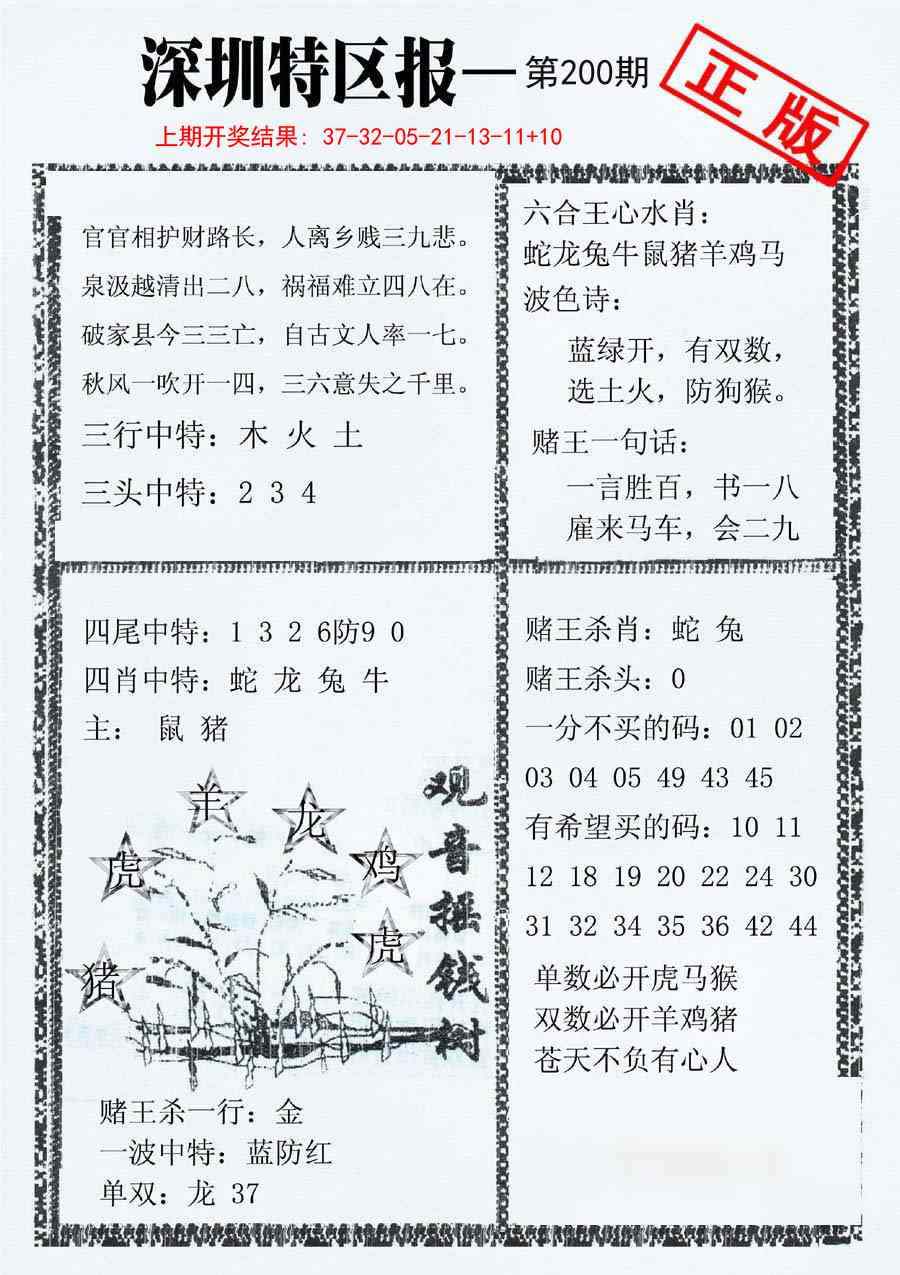 深圳特区报—第200期
正版
上期开奖结果: 37-32-05-21-13-11+10
官官相护财路长，人离乡贱三九悲。
泉汲越清出二八，祸福难立四八在。
破家县今三三亡，自古文人率一七。
秋风一吹开一四，三六意失之千里。
三行中特：木 火 土
三头中特：2 3 4
六合王心水肖：
蛇龙兔牛鼠猪羊鸡马
波色诗：
蓝绿开，有双数，
选土火，防狗猴。
赌王一句话：
一言胜百，书一八
雇来马车，会二九
四尾中特：1 3 2 6防9 0
四肖中特：蛇 龙 兔 牛
主： 鼠 猪
羊
龙
虎
鸡
虎
猪
观音摇钱树
赌王杀一行：金
一波中特：蓝防红
单双：龙 37
赌王杀肖：蛇 兔
赌王杀头：0
一分不买的码：01 02
03 04 05 49 43 45
有希望买的码：10 11
12 18 19 20 22 24 30
31 32 34 35 36 42 44
单数必开虎马猴
双数必开羊鸡猪
苍天不负有心人